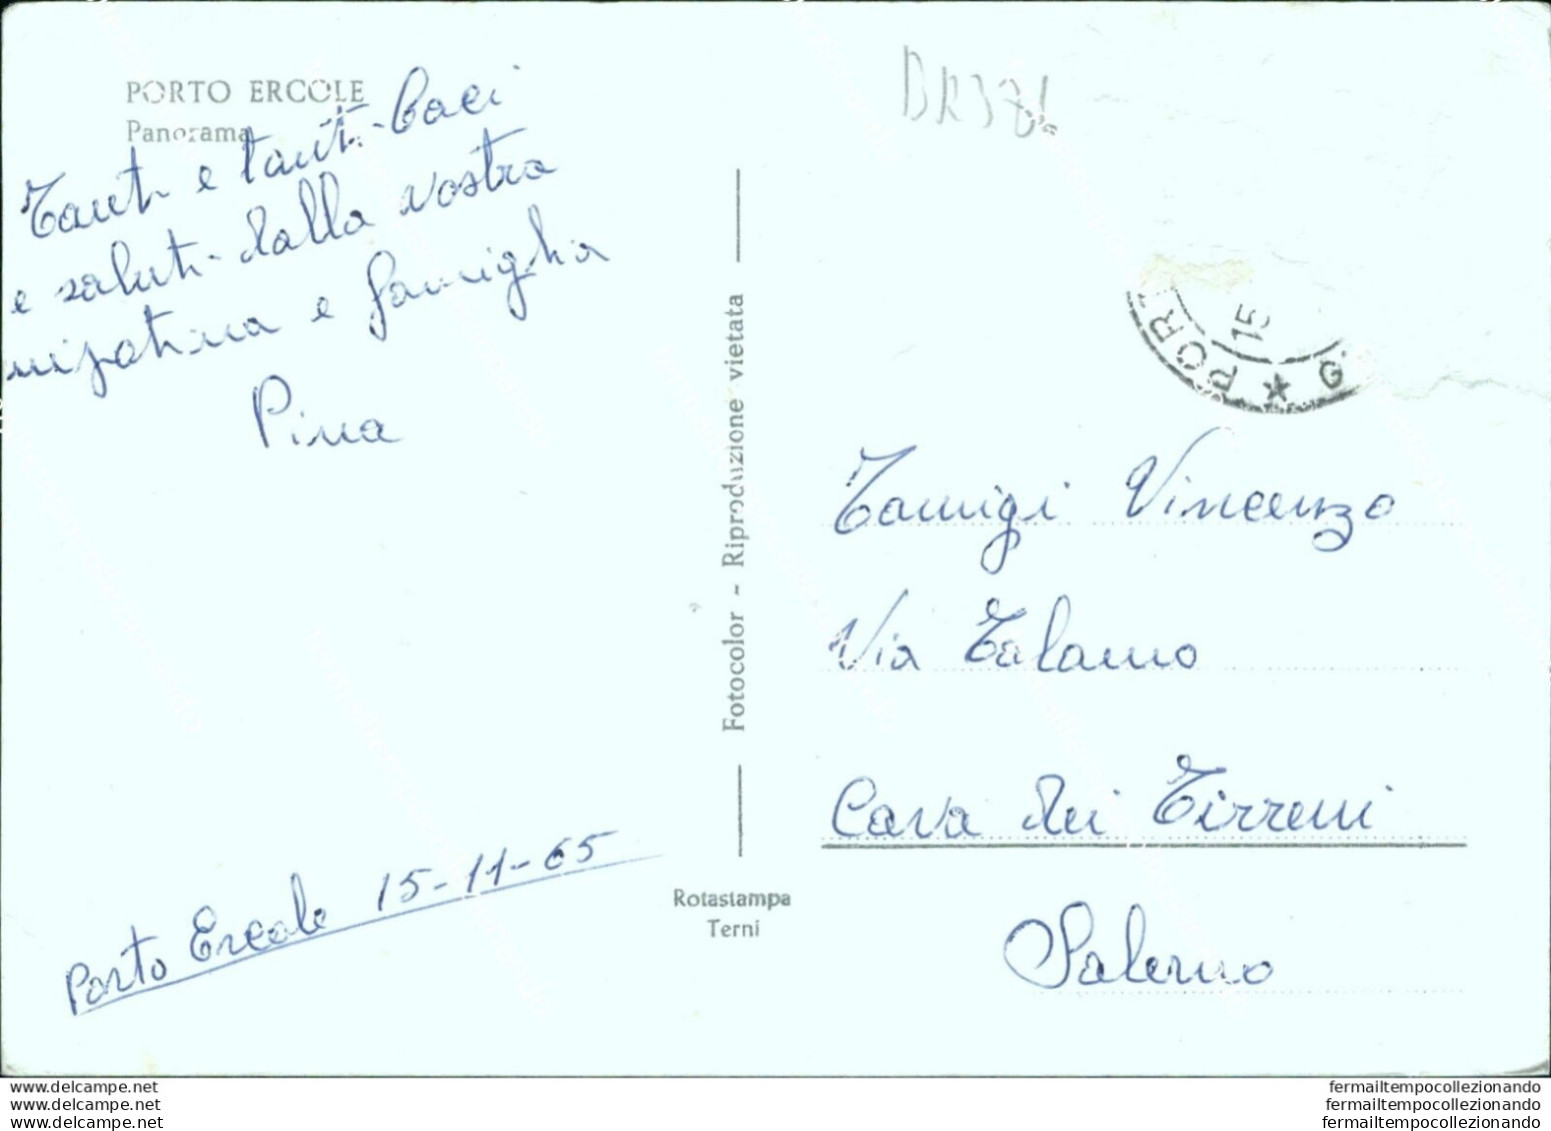 PORTO ERCOLE
Panorama
Tanti e tanti baci
e saluti dalla vostra
nipotina e famiglia
Pina
Porto Ercole 15-11-65
Fotocolor - Riproduzione vietata
Rotastampa
Terni
POR
15
G
Tamigi Vincenzo
Via Talamo
Cava dei Tirreni
Salerno
www.delcampe.net
www.delcampe.net
www.delcampe.net
fermailtempocollezionando
fermailtempocollezionando
fermailtempocollezionando